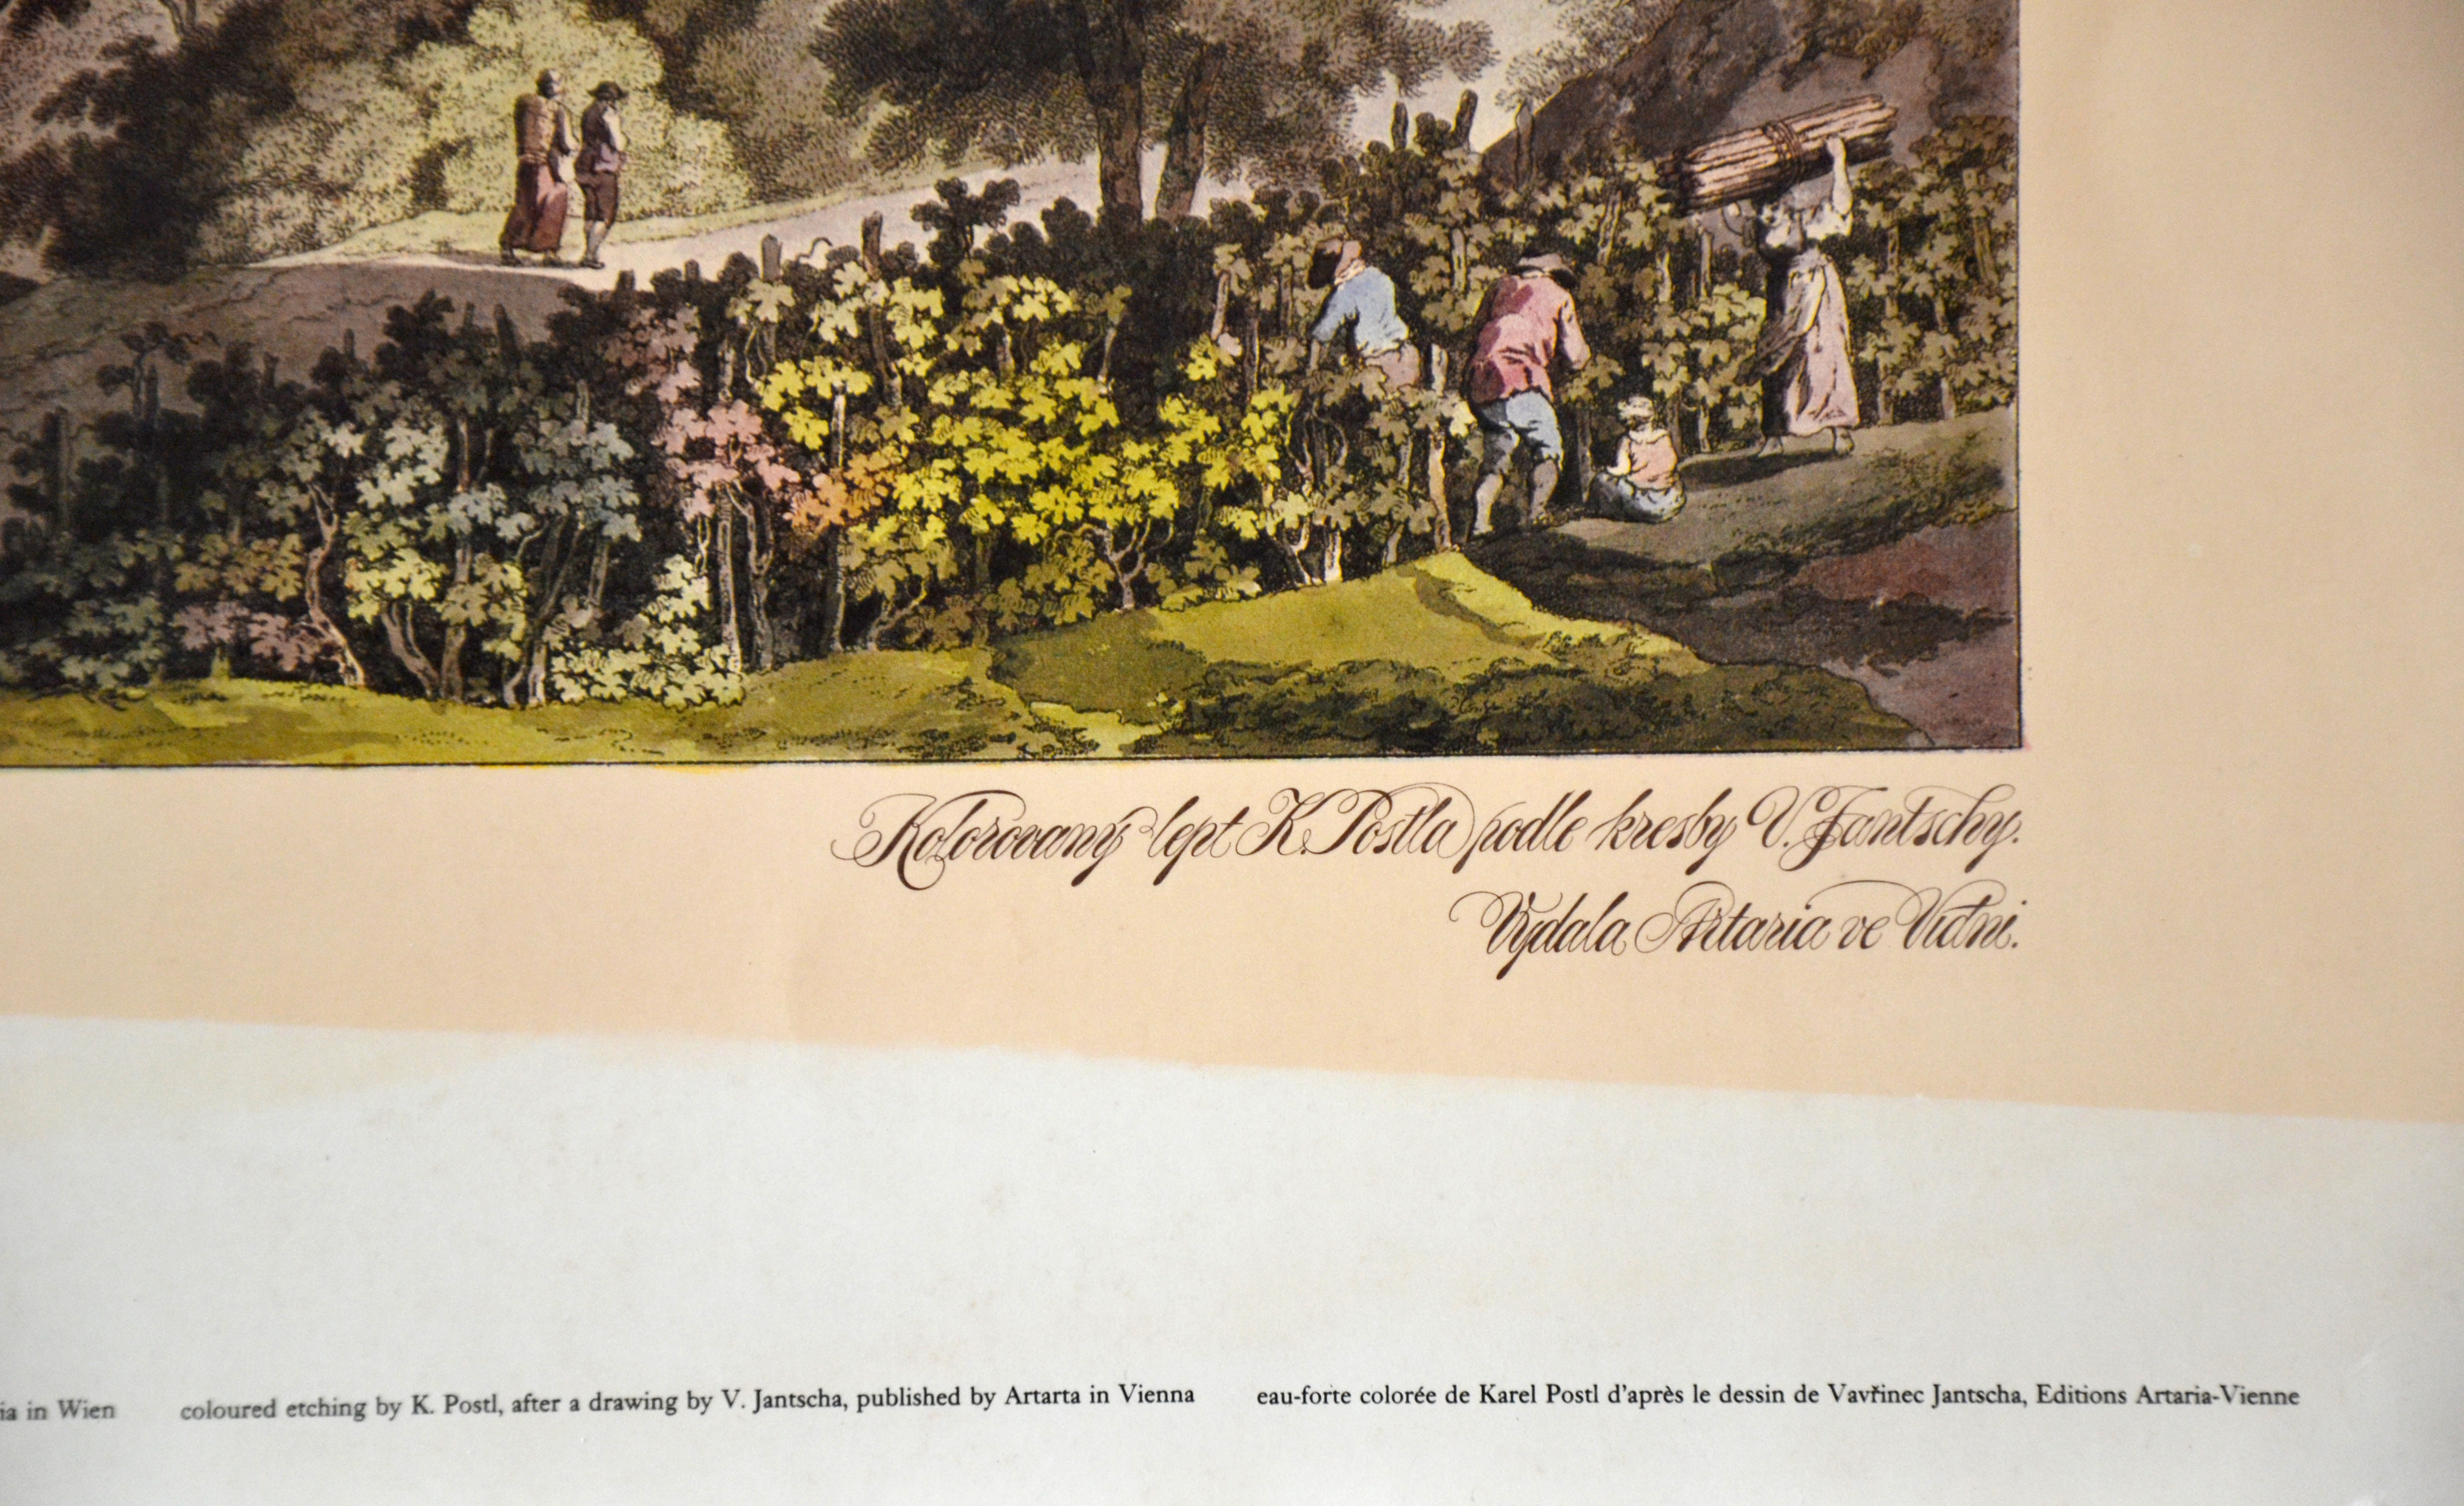 Kolorovaný lept K. Postla podle kresby V. Jantschy.
Vydala Artaria ve Vídni.
ia in Wien coloured etching by K. Postl, after a drawing by V. Jantscha, published by Artarta in Vienna eau-forte colorée de Karel Postl d'après le dessin de Vavřinec Jantscha, Editions Artaria-Vienne